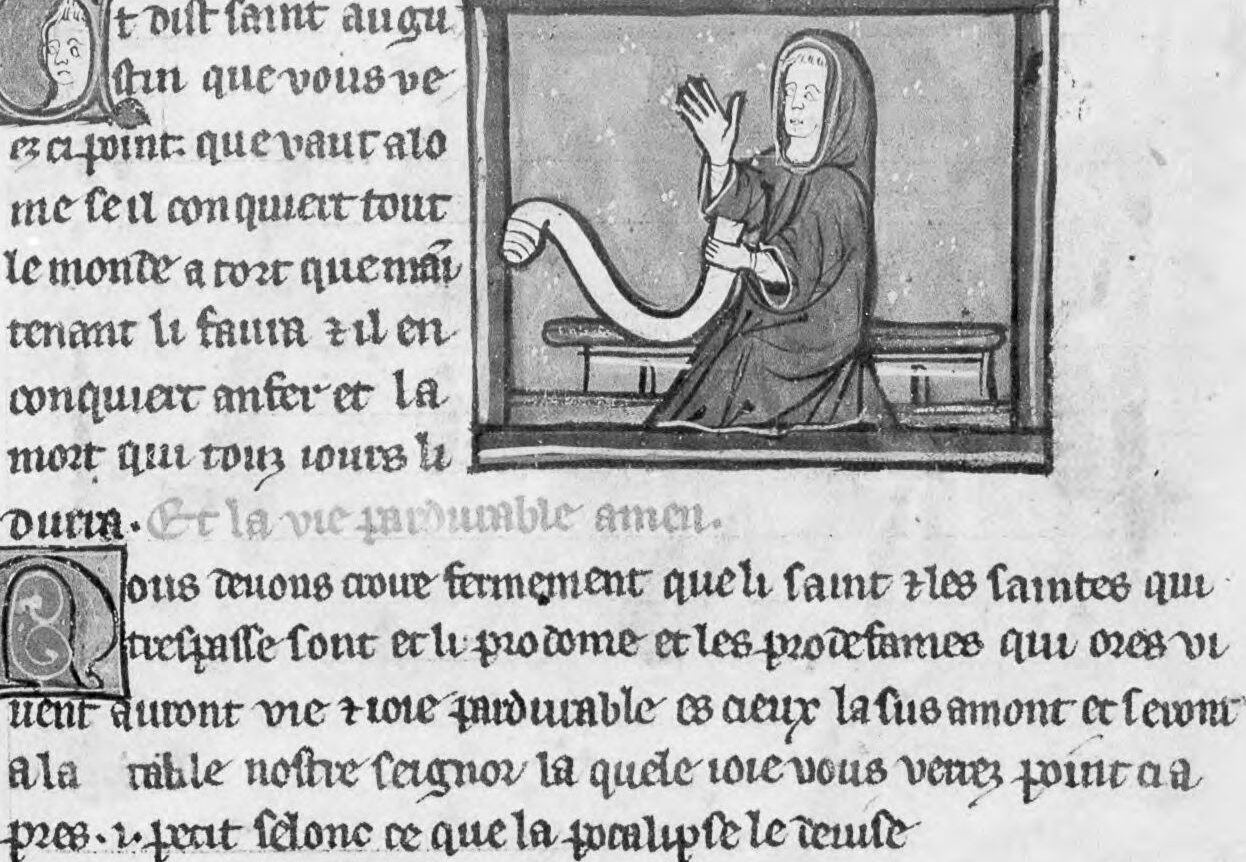 Et dist saint augu
stin que vous ve
ez ci point. que vaut a lo
me se il conquiert tout
le monde a tort que mai͂
tenant li faura ⁊ il en
conquiert anfer et la
mort qui touz iours li
durra. Et la vie pardurable amen.
Nous deuons croire fermement que li saint ⁊ les saintes qui
trespasse sont et li prodome et les prodefames qui ores vi
uent auront vie ⁊ ioie pardurable es cieux la sus amont et seront
a la table nostre seignor la quele ioie vous verrez point ci a
pres .i. petit selonc ce que la pocalipse le deuise